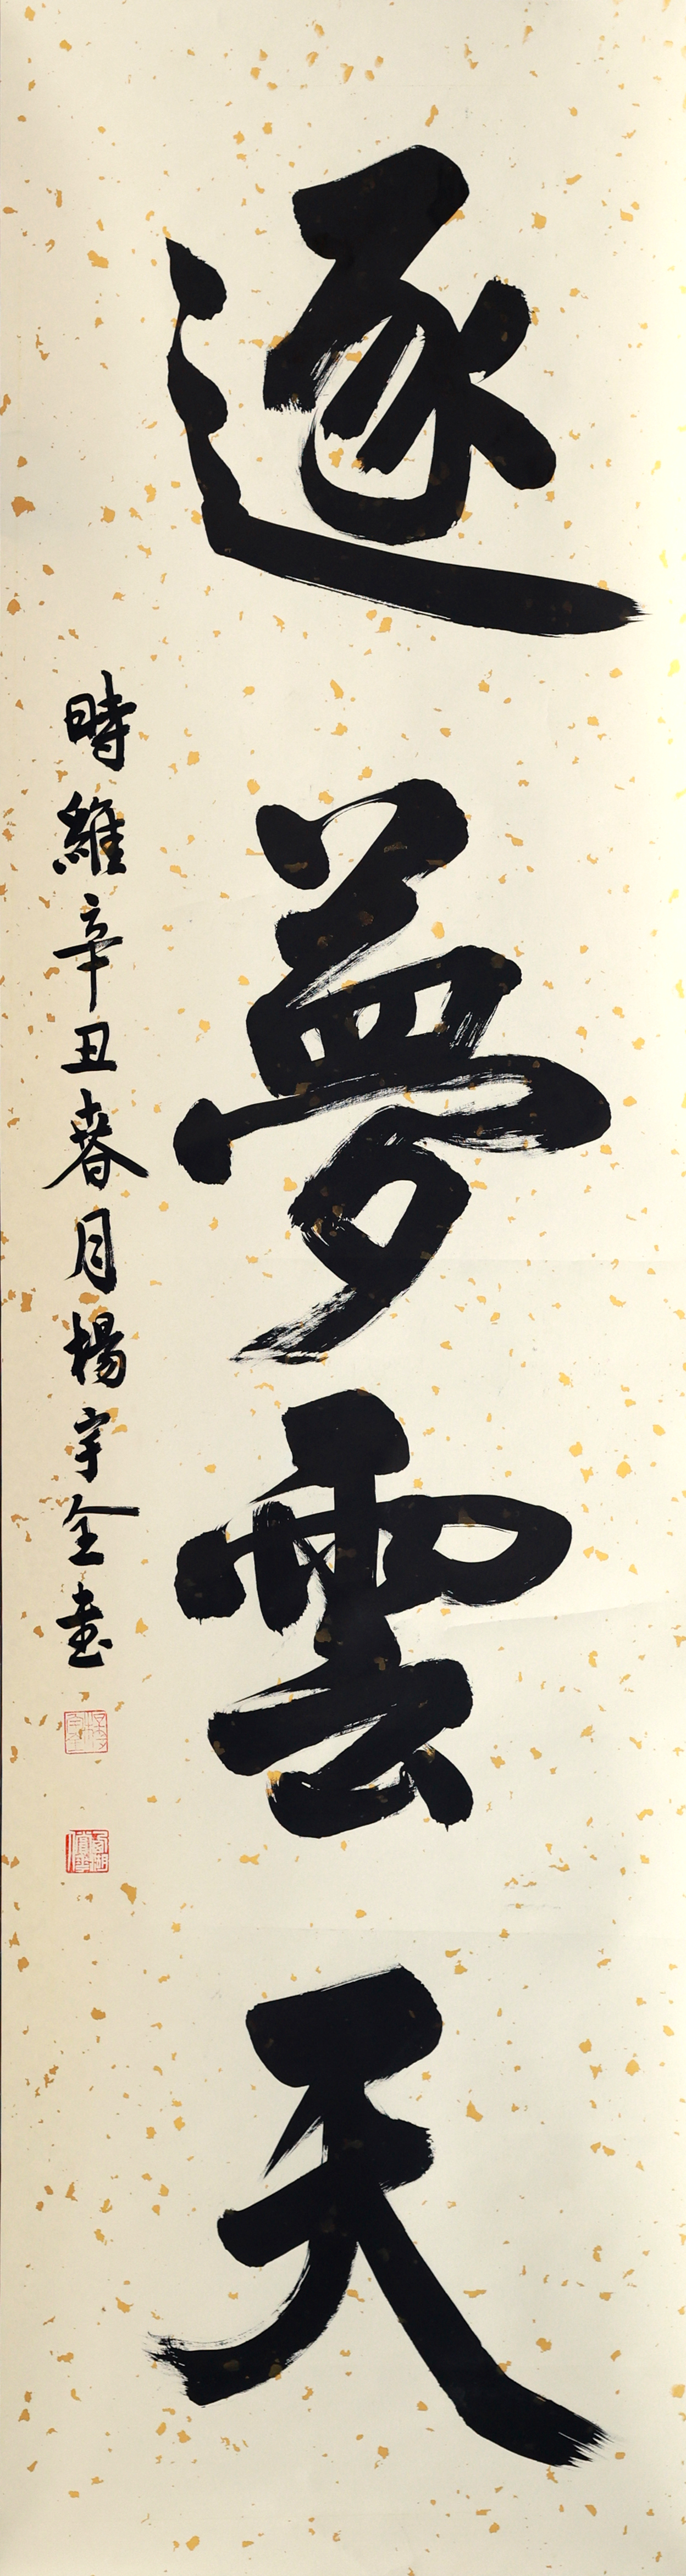 逐夢雲天
時維辛丑春月楊宇全書